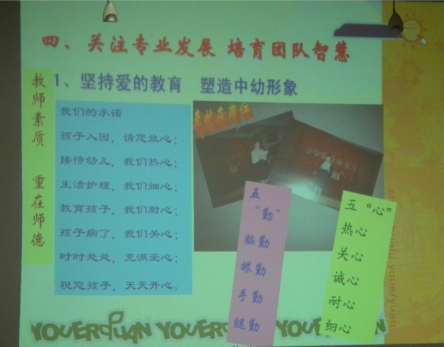 四、关注专业发展 培育团队智慧
1、坚持爱的教育 塑造中幼形象
教师素质 重在师德
我们的承诺
孩子入园，请您放心；
接待幼儿，我们热心；
生活护理，我们细心；
教育孩子，我们耐心；
孩子病了，我们关心；
时时处处，充满爱心；
祝您孩子，天天开心。
五
“勤”
脑勤
眼勤
手勤
腿勤
五“心”
热心
关心
诚心
耐心
细心
YOUERYUAN YOUERYUAN YOUERYUAN